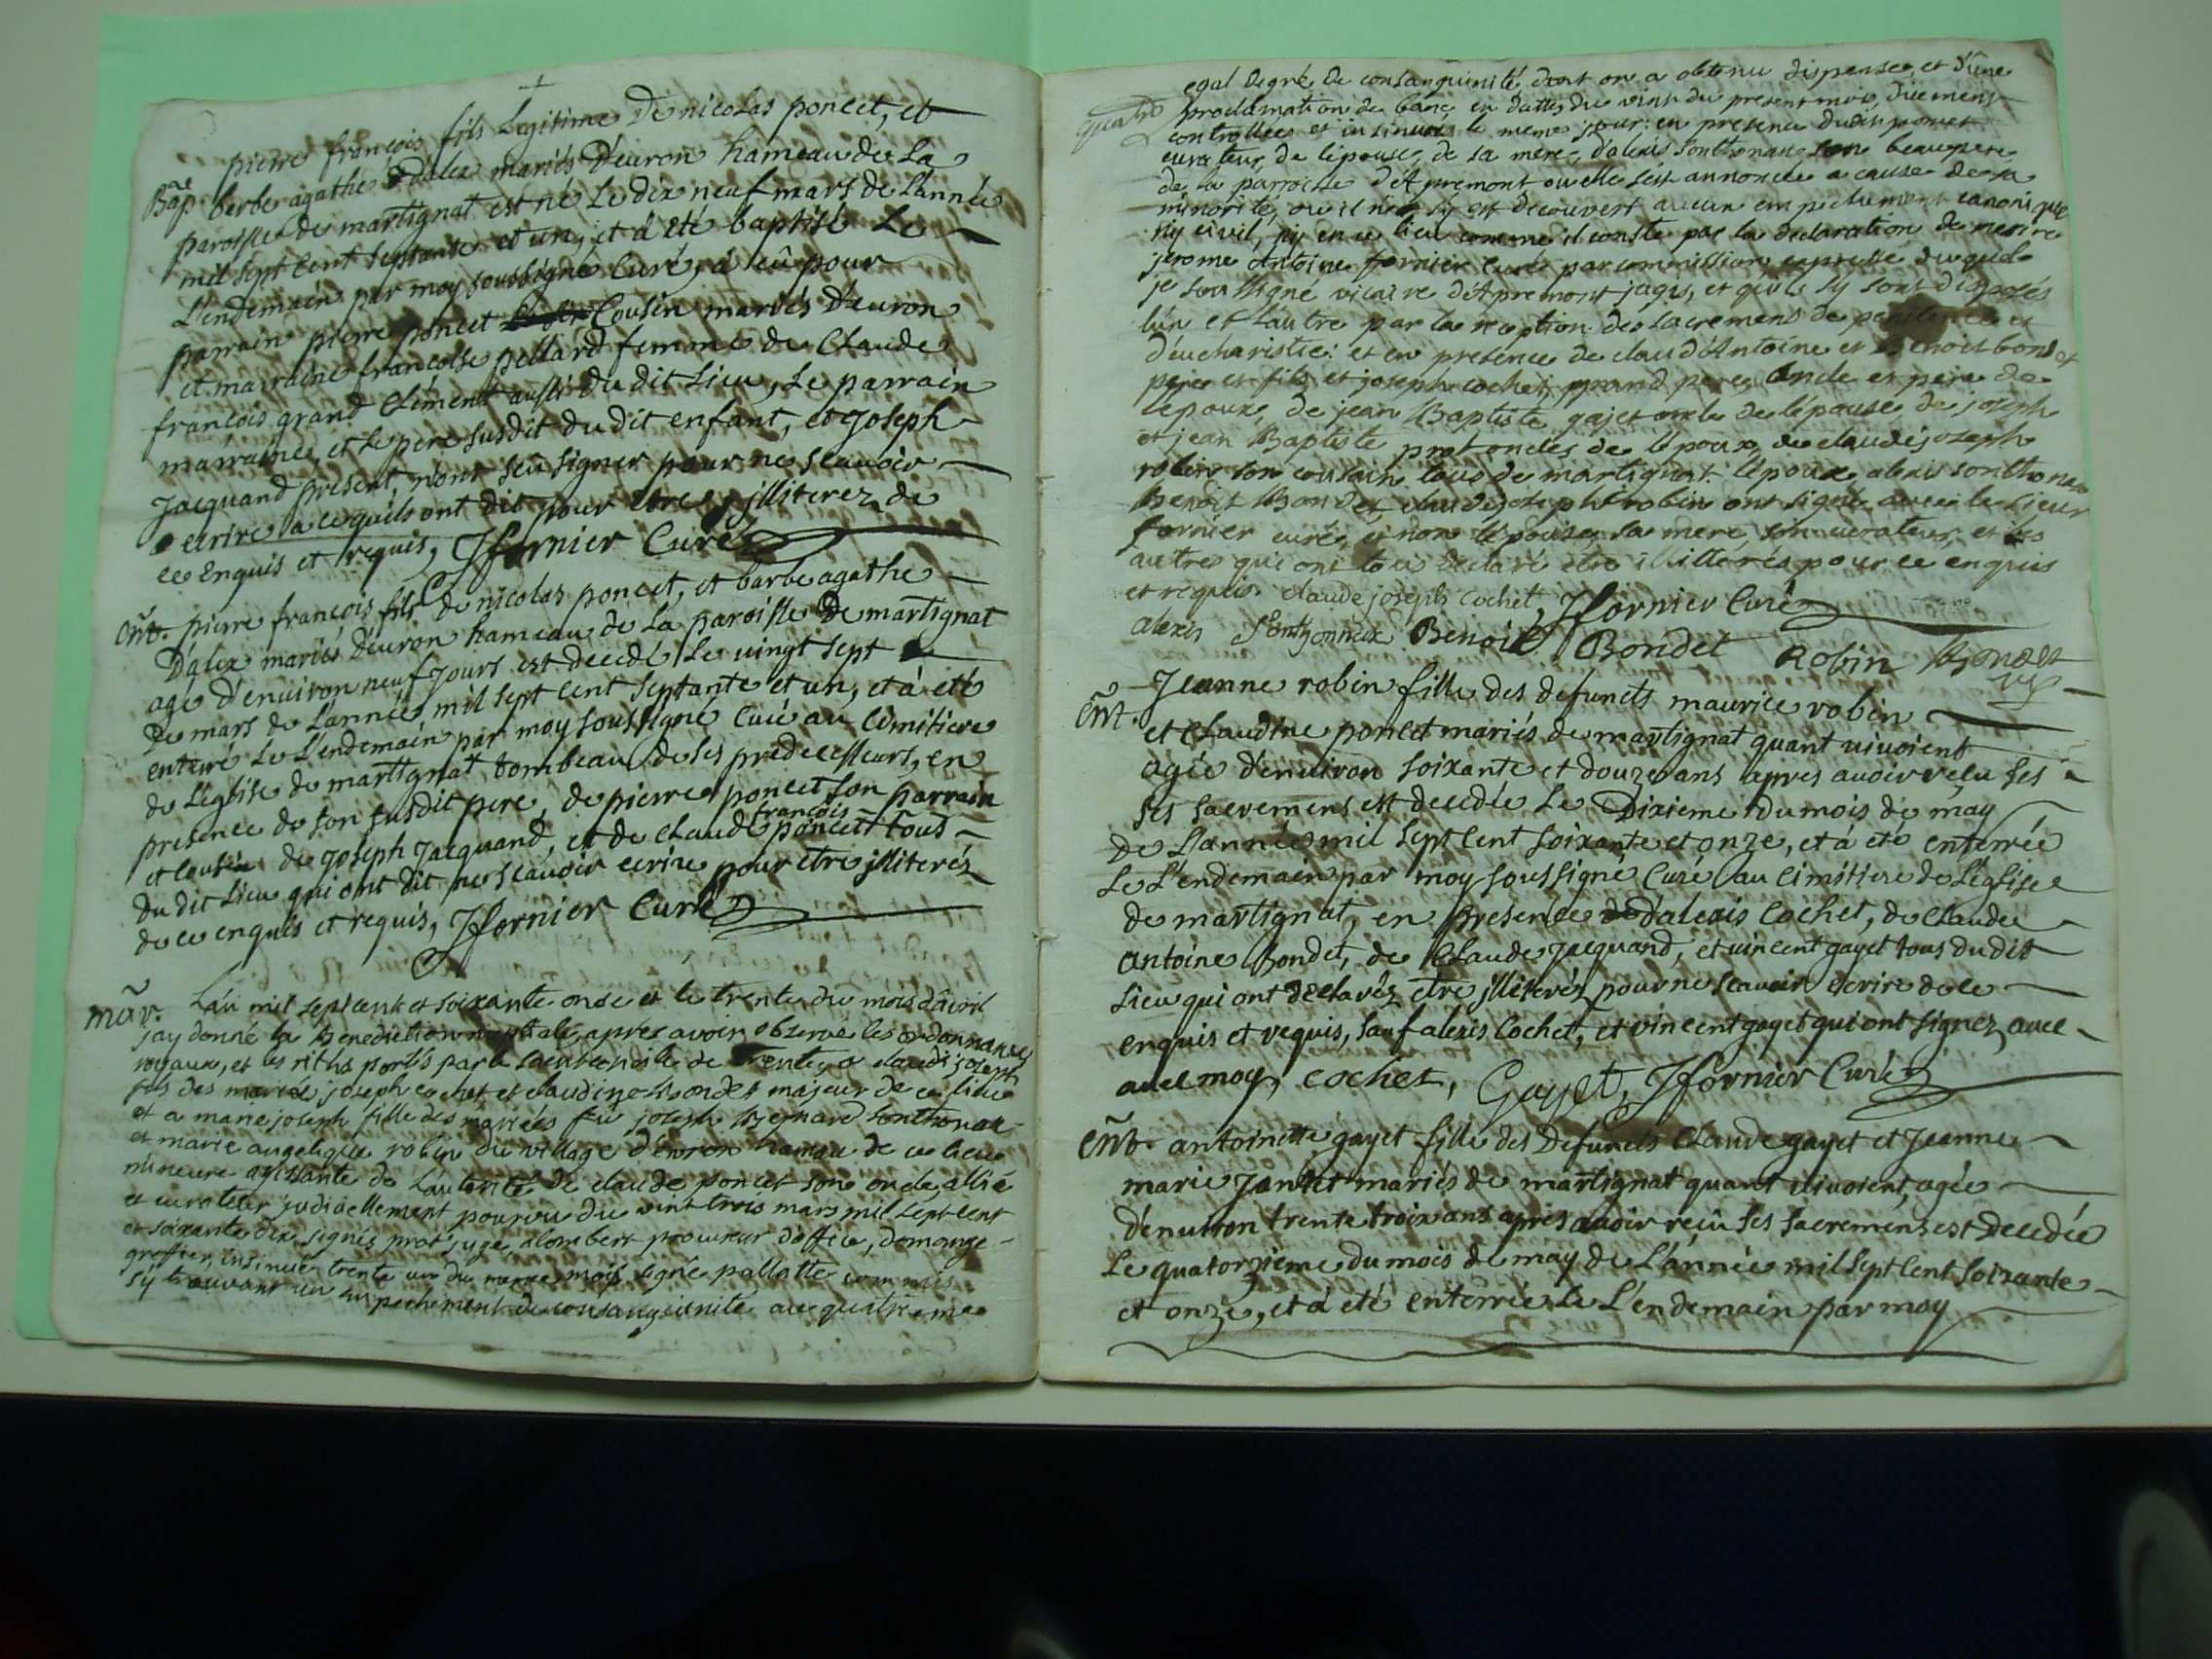 pierre françois fils Legitime de nicolas poncet, et
Bâp berbe agathe d'alex mariés D'euron hameau de La
paroisse de martignat est né Le dix neuf mars de L'année
mil sept cent septante et un, et a eté baptisé Le
L'endemain par moy soussigné Curé, a eû pour
parrain pierre poncet Cousin mariés D'euron
et marraine francoise pellard femme de Claude
françois grand Clément aussi du dit Lieu, Le parrain
marraine, et Le pere susdit du dit enfant, et Joseph
Jacquand present, n'ont sçeu signer pour ne sçauoir
ecrire a ce quils ont dit pour etre jlliterez de
ce enquis et requis, Jfornier Curé
ent. pierre françois fils de nicolas poncet, et barbe agathe
D'alex mariés D'euron hameau de La paroisse De martignat
agé D'enuiron neuf Jours est decedé Le vingt sept
De mars de L'année mil sept cent septante et un, et à eté
enterré Le L'endemain par moy soussigné Curé au Cimitiere
de L'eglise de martignat tombeau de ses predecesseurs, en
presence de son susdit pere, de pierre poncet son parrain
et cousin de Joseph Jacquand, et de Claude françois poncet tous
du dit Lieu qui ont dit ne sçauoir ecrire pour etre jlliteréz
de ce enquis et requis, Jfornier Curé
mâr. L'an mil sept cent et soixante onse et le trente du mois d'avril
jay donné la Benediction nuptiale, apres avoir observé les ordonnances
royaux, et les riths portés par le saint concile de trente, a claude joseph
fils des mariés joseph cochet et claudine Bondet majeur de ce lieu
et a marie joseph fille des mariées feu joseph Bernard sonthonax
et marie angelique robin du village d'evron hameau de ce lieu
mineure agissante de L'autorité de claude poncet son oncle, allié
et curateur judiciellement pourvu du vint trois mars mil sept cent
et soixante dix signés prot juge, alombert procureur d'office, domange
greffier, insinué trente un du meme mois signé pallatte commis
s'y trouvant un empechement de consanguinité au quatrieme
egal degré de consanguinité dont on a obtenu dispense, et d'une
quatre proclamation de banc en dattes du vint du present mois, duement
controllée et insinuée le meme jour: en presence dudit poncet
curateur de l'épouse, de sa mere, d'alexis sonthonax son beaupere
de la parroisse d'Apremont ou elle sest annoncée a cause de sa
minorité, ou il ne s'y est decouvert aucun empechement canonique
ny civil, ny en ce lieu comme il conste par la declaration de messire
jerome Antoine fornier curé par commission expresse duquel
je soussigné vicaire d'Apremont jagis, et quils sy sont disposés
lun et lautre par la reception des sacremens de penitence et
d'eucharistie: et en presence de claud'Antoine et Benoit bondet
pere et fils et joseph cochet, grand pere, oncle et pere de
lepoux, de jean Baptiste gajet oncle de lépouse de joseph
et jean Baptiste prot oncles de lépoux, de claude joseph
robin son cousin tous de martignat: lépoux alexis sonthonax
Benoit Bondet, claude joseph robin ont signé avec le sieur
fornier curé, et non lépouse, sa mere, son curateur, et les
autres qui ont tous declaré etre illiterés, pour ce enquis
et requis. claude joseph cochet, Jfornier Curé
alexis Sonthonnax Benoit Bondet Robin
ent. Jeanne robin fille des defuncts maurice robin
et Claudine poncet mariés de martignat quant vivoient
agée d'enuiron soixante et douze ans apres auoir reçu ses
ses sacremens est decedée Le Dixieme du mois de may
De L'année mil sept cent soixante et onze, et à eté enterrée
Le L'endemain par moy soussigné Curé au cimitiere de L'eglise
de martignat, en presence d'alexis Cochet, de Claude
antoine Bondet, de Claude Jacquand, et vincent gayet tous du dit
Lieu qui ont declaréz etre jlliteréz pour ne scauoir ecrire de ce
enquis et requis, sauf alexis Cochet, et vincent gayet qui ont signez avec
auec moy, cochet, Gayet, Jfornier Curé
ent. antoinette gayet fille des Defuncts Claude gayet et Jeanne
marie Jantet mariés de martignat quant vivoient, agée
d'enuiron trente troix ans apres auoir reçu ses sacremens est Decedée
Le quatorzieme du mois de may de L'année mil sept cent soixante
et onze, et à eté enterrée Le L'endemain par moy